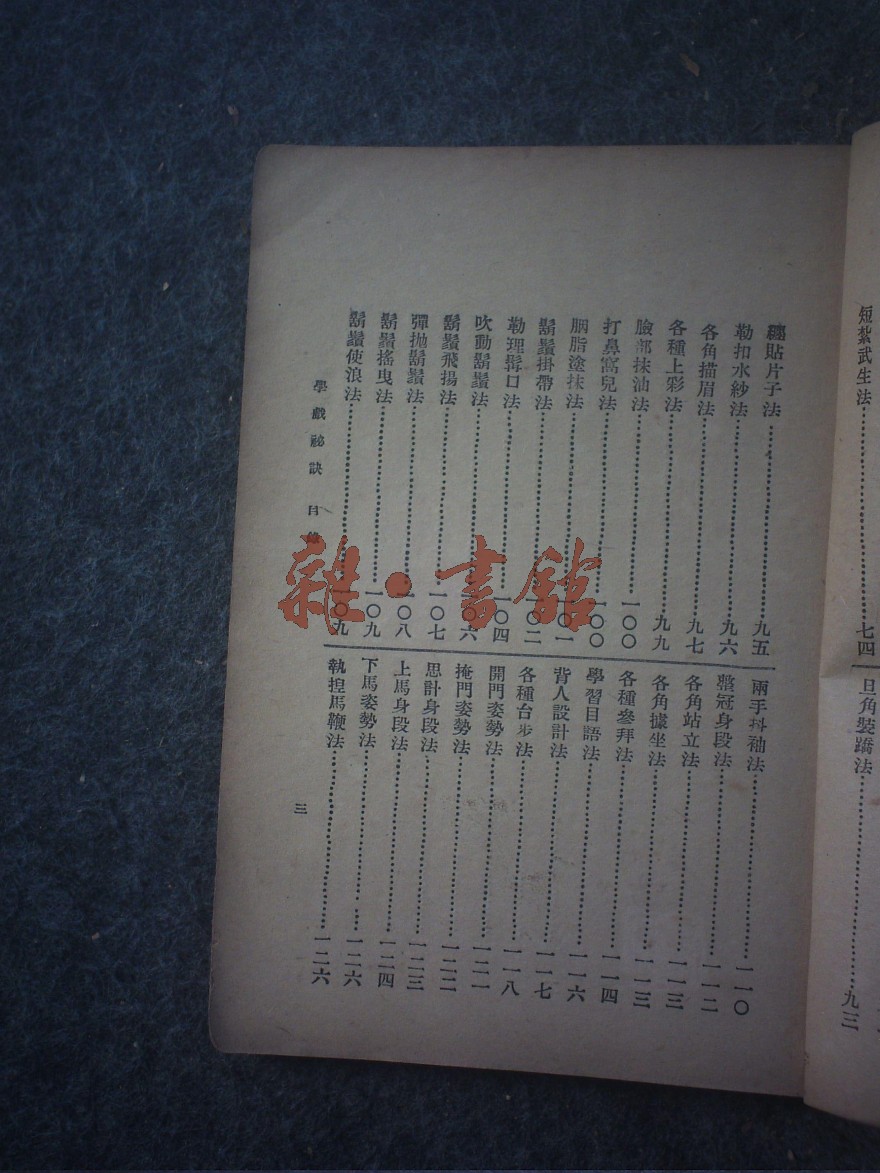 短紮武生法……七四
旦角裝蹻法……九三
纏貼片子法……九五
勒扣水紗法……九六
各角描眉法……九七
各種上彩法……九九
臉部抹油法……一〇〇
打鼻窩兒法……一〇〇
胭脂塗抹法……一〇一
鬍鬚掛帶法……一〇二
勒理髯口法……一〇四
吹動鬍鬚法……一〇六
鬍鬚飛揚法……一〇七
彈拋鬍鬚法……一〇八
鬍鬚搖曳法……一〇九
鬍鬚使浪法……一〇九
兩手抖袖法……一一〇
整冠身段法……一一二
各角站立法……一一三
各角據坐法……一一三
各種參拜法……一一四
學習目語法……一一六
背人設計法……一一七
各種台步法……一一八
開門姿勢法……一二一
掩門姿勢法……一二二
思計身段法……一二三
上馬身段法……一二四
下馬姿勢法……一二六
執捏馬鞭法……一二六
學戲祕訣 目錄
三
雜·書館